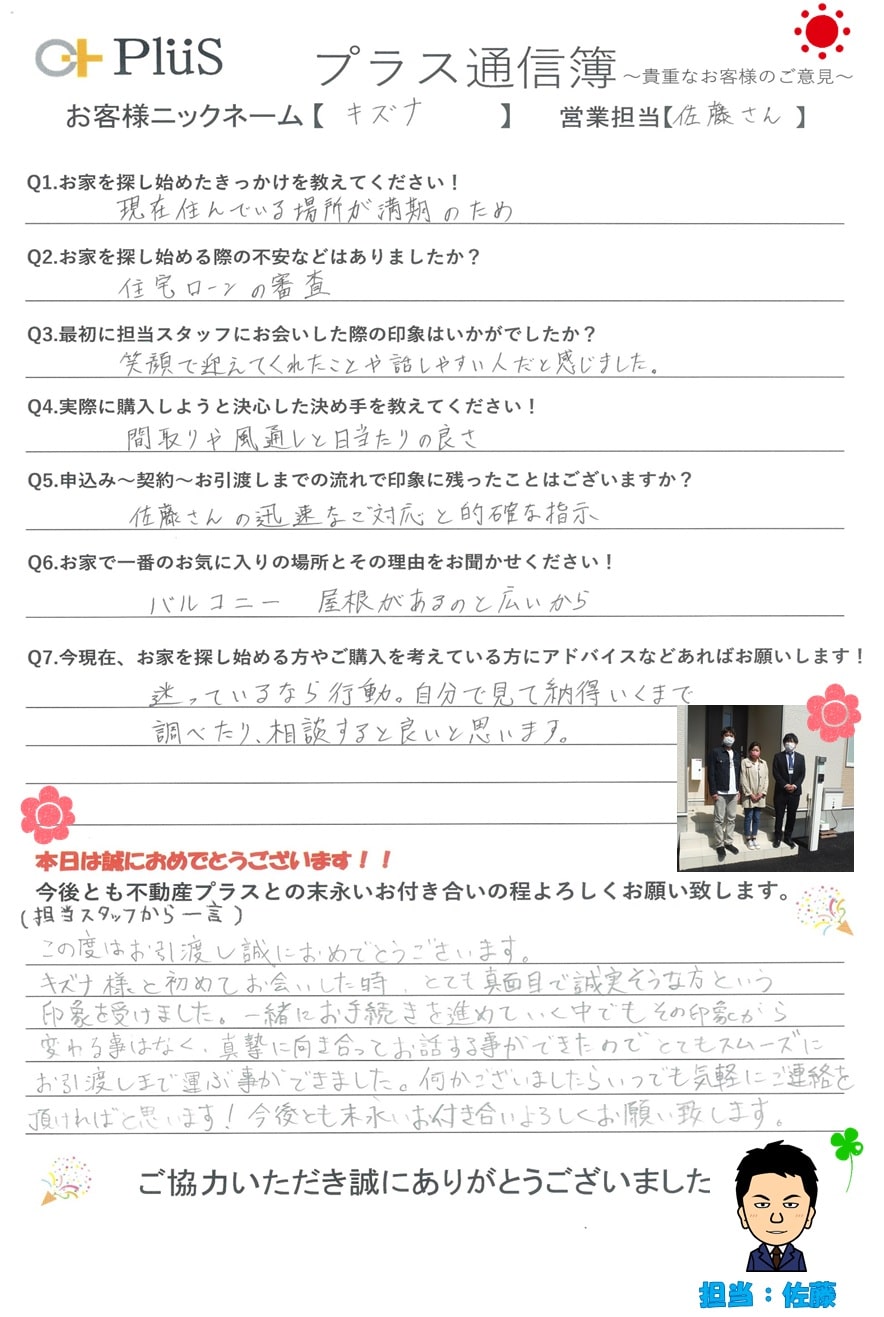 PlüS
プラス通信簿 ～貴重なお客様のご意見～
お客様ニックネーム【 キズナ 】 営業担当【佐藤さん 】
Q1.お家を探し始めたきっかけを教えてください！
現在住んでいる場所が満期のため
Q2.お家を探し始める際の不安などはありましたか？
住宅ローンの審査
Q3.最初に担当スタッフにお会いした際の印象はいかがでしたか？
笑顔で迎えてくれたことや話しやすい人だと感じました。
Q4.実際に購入しようと決心した決め手を教えてください！
間取りや風通しと日当たりの良さ
Q5.申込み～契約～お引渡しまでの流れで印象に残ったことはございますか？
佐藤さんの迅速なご対応と的確な指示
Q6.お家で一番のお気に入りの場所とその理由をお聞かせください！
バルコニー 屋根があるのと広いから
Q7.今現在、お家を探し始める方やご購入を考えている方にアドバイスなどあればお願いします！
迷っているなら行動。自分で見て納得いくまで
調べたり、相談すると良いと思います。
本日は誠におめでとうございます！！
今後とも不動産プラスとの末永いお付き合いの程よろしくお願い致します。
(担当スタッフから一言)
この度はお引渡し誠におめでとうございます。
キズナ様と初めてお会いした時、とても真面目で誠実そうな方という
印象を受けました。一緒にお手続きを進めていく中でもその印象から
変わる事はなく、真摯に向き合ってお話する事ができたのでとてもスムーズに
お引渡しまで運ぶ事ができました。何かございましたらいつでも気軽にご連絡を
頂ければと思います！今後とも末永いお付き合いよろしくお願い致します。
ご協力いただき誠にありがとうございました
担当：佐藤